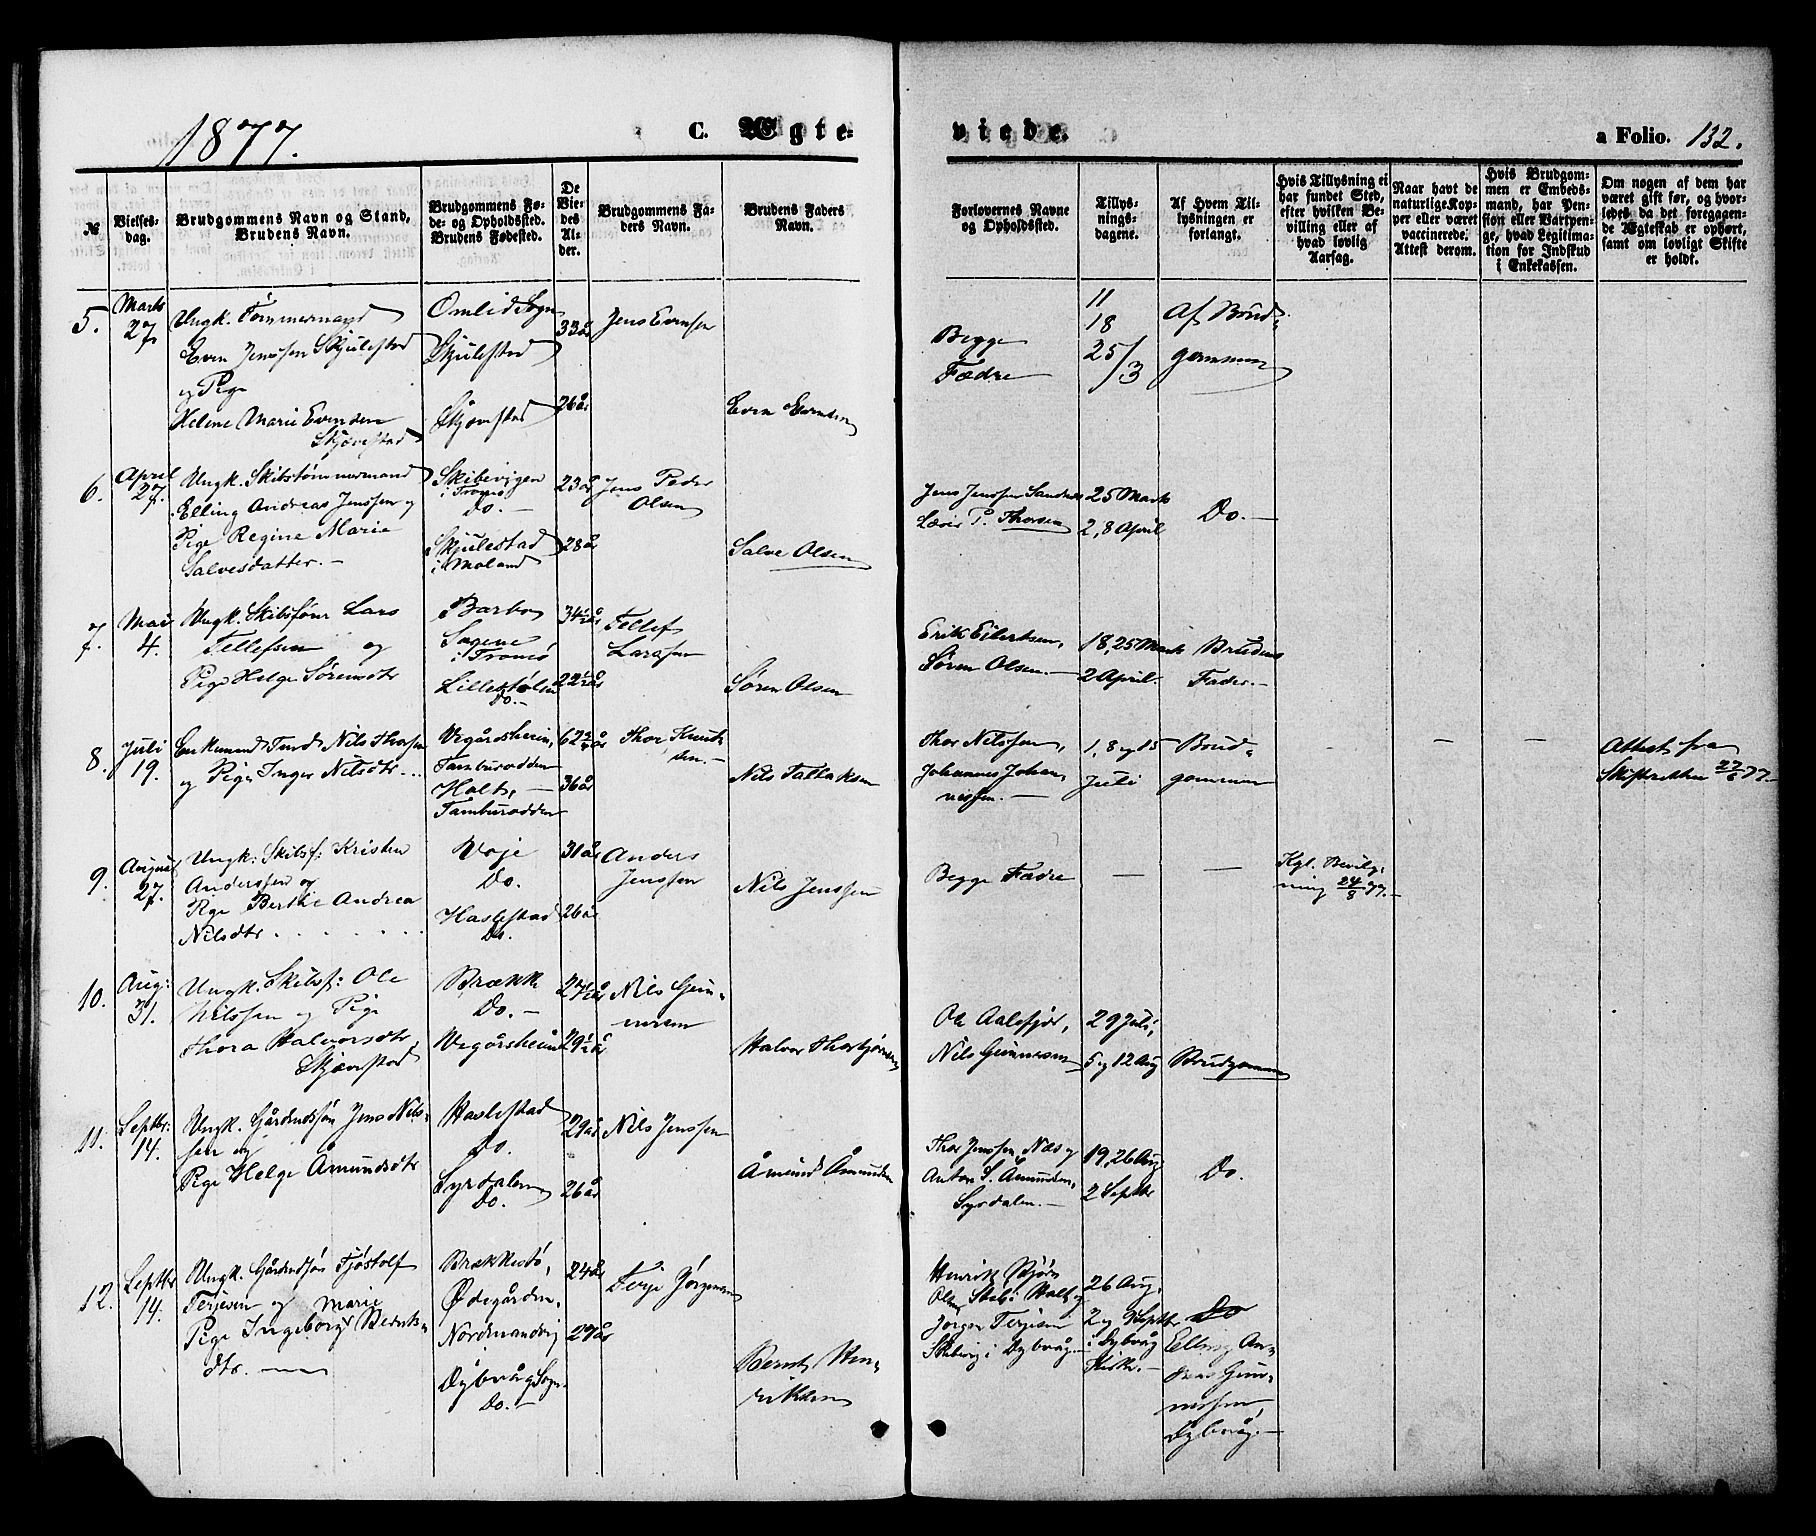 1877.
C. Ægte-
viede.
a Folio. 132.
№
Vielses-
dag.
Brudgommens Navn og Stand,
Brudens Navn.
Brudgommens Fø-
de- og Opholdssted.
Brudens Fødested.
De
Vie-
des
Al-
der.
Brudgommens Fa-
ders Navn.
Brudens Faders
Navn.
Forlovernes Navne
og Opholdssted.
Tillys-
nings-
dagene.
Af Hvem Til-
lysningen er
forlangt.
Hvis Tillysning ei
har fundet Sted,
efter hvilken Be-
villing eller af
hvad lovlig
Aarsag.
Naar havt de
naturlige Kop-
per eller været
vaccinerede.
Attest derom.
Hvis Brudgom-
men er Embeds-
mand, har Pen-
sion eller Vartpen-
ge, hvad Legitima-
tion for Indskud
i Enkekassen.
Om nogen af dem har
været gift før, og hvor-
ledes da det foregaaen-
de Ægteskab er ophørt,
samt om lovligt Skifte
er holdt.
5.
Marts
27
Ungk. Tømmermand
Even Jenssen Skjulestad
og Pige
Helene Marie Evensen
Skjævestad
Omlid Sogn
Skjulestad
Skjævestad
33 år
26 år
Jens Evensen
Even Evensen
Begge
Fædre
11
18
25/3
Af Brud-
gommen
6.
April
27.
Ungk. Skibstømmermand
Elling Andreas Jenssen og
Pige Regine Marie
Salvesdatter.-
Skibevigen
i Tromø
Do.-
Skjulestad
i Moland
23 år
28 år
Jens Peder
Olsen
Salve Olsen
Jens Jenssen Sandnes
Lævis P. Thorsen
25 Marts
2, 8 April
Do.-
7.
Mai
4.
Ungk. Skibsfører Lars
Tellefsen og
Pige Helge Sørensdtr
Barbo
Sagene
i Tromø
Lillestolen
Do.-
34½ år
22½ år
Tellef
Larssen
Søren Olsen
Erik Eilertsen,
Søren Olsen.-
18, 25 Marts
2 April.
Brudens
Fader.-
8.
Juli
19.
Enkemand Nils Thorsen
og Pige Inger Nilsdtr
Vegårdsheim,
Tamburodden
Holt,
Tamburodden
36 år
Thor Knud-
sen.-
Nils Tallaksen
Thor Nilssen,
Johannes Johan-
nessen.-
1, 8 og 15
Juli
Brud-
gommen
-
-
-
Attest fra
Skifteretten 27/6 77.-
9.
August
27.
Ungk. Skibsf: Kristen
Anderssen og
Pige Berthe Andrea
Nilsdtr.
Voje
Do.
Haslestad
Do.
31 år
26 år
Anders
Jenssen
Nils Jenssen
Begge Fædre
—
—
Kgl. Bevilg-
ning 24/8 77.-
10.
Aug:
31.
Ungk. Skibsf: Ole
Nilssen og Pige
Thora Halvorsdtr
Skjævestad
Brække
Do.-
Vegårsheim
27½ år
29½ år
Nils Gun-
nersen
Halvor Thorbjørnsen
Ole Aalefjær,
Nils Gunnersen
29 Juli,
5 og 12 Aug
Brudgommen
11.
Septbr:
14.
Ungk. Gårdmdssøn Jens Nils-
sen og
Pige Helge Åmundsdtr
Haslestad
Do.
Syrdalen
Do.
29 år
26 år
Nils Jenssen
Åmund Åmundsen
Thor Jenssen Næs og
Anton S. Åmundsen,
Syrdalen.-
19, 26 Aug
2 Septbr
Do.
12.
Septbr
14.
Ungk. Gårdmdsøn Tjøstolf
Terjesen og Marie
Pige Ingeborg Bernts-
dtr.
Brækkestø,
Ødegården.
Nordmandvig
Dybvåg Sogn.
Do.-
24 år
27 år
Terje Jørgensen
Bernt Hen-
riksen
Henrik Bjørn
Olsen Stabø i Holt og
Jørgen Terjesen
Skibevig i Dybvåg.-
26 Aug.
2 og 9 Septbr
i Dybvåg
Kirke.-
Do
Elling An-
dreas Gun-
nersen,
Dybvåg.-